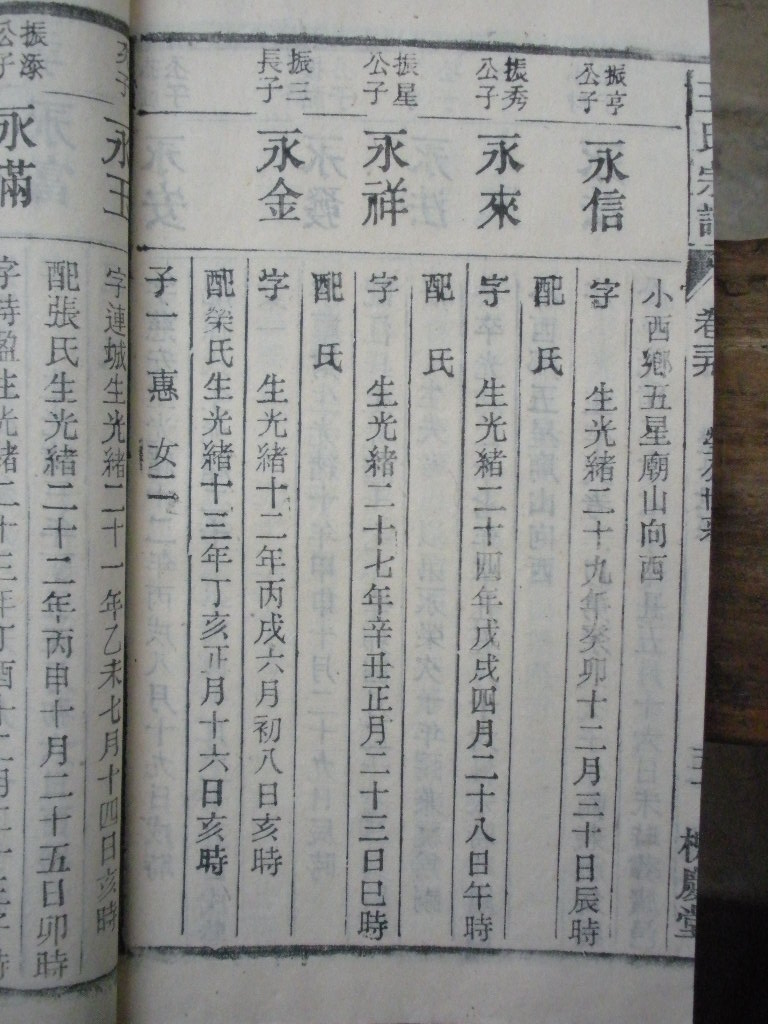 王氏宗譜
卷
慶堂
小西鄉五星廟山向西
振亨公子
永信
字 生光緒二十九年癸卯十二月三十日辰時
配 氏
振秀公子
永來
字 生光緒二十四年戊戌四月二十八日午時
配 氏
振星公子
永祥
字 生光緒二十七年辛丑正月二十三日巳時
配 氏
振三長子
永金
字 生光緒十二年丙戌六月初八日亥時
配榮氏生光緒十三年丁亥正月十六日亥時
子一 惠 女二
永玉
字連城生光緒二十一年乙未七月十四日亥時
配張氏生光緒二十二年丙申十月二十五日卯時
公子
永滿
字時盈生光緒二十三年丁酉十二月二十